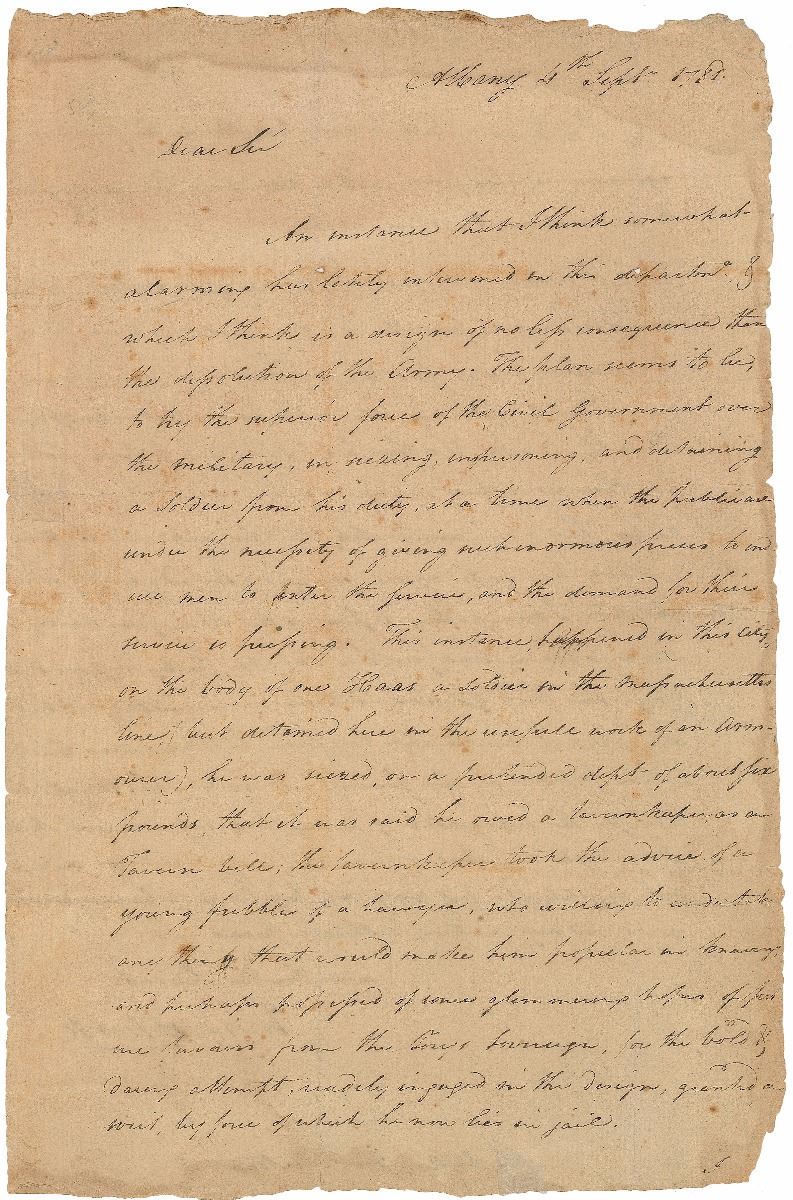 Albany 4th Septr 1781.
Dear Sir
An instance that I think somewhat
alarming has lately intervened in this departmt. &
which I think is a design of no less consequence than
the dissolution of the Army. The plan seems to be,
to try the superior force of the Civil Government over
the military, in siezing, imprisoning, and detaining
a Soldier from his duty, at a time when the public are
under the necessity of giving such enormous prices to ind
uce men to enter the service, and the demand for their
service is pressing. This instance happened in this City,
on the body of one Haas a Soldier in the Massachusetts
line, (but detained here in the usefull work of an Arm-
ourer), he was siezed, on a pretended dept of about six
pounds, that it was said he owed a tavernkeeper, as a
Tavern bill; the tavernkeeper took the advice of a
young fribble of a Lawyer, who willing to undertake
any thing that would make him popular in
and perhaps possessed of some glimmering hopes of
favours from the Sovereign, for the bold &
daring attempt, readily engaged in the design, granted a
writ, by force of which he now lies in jail.